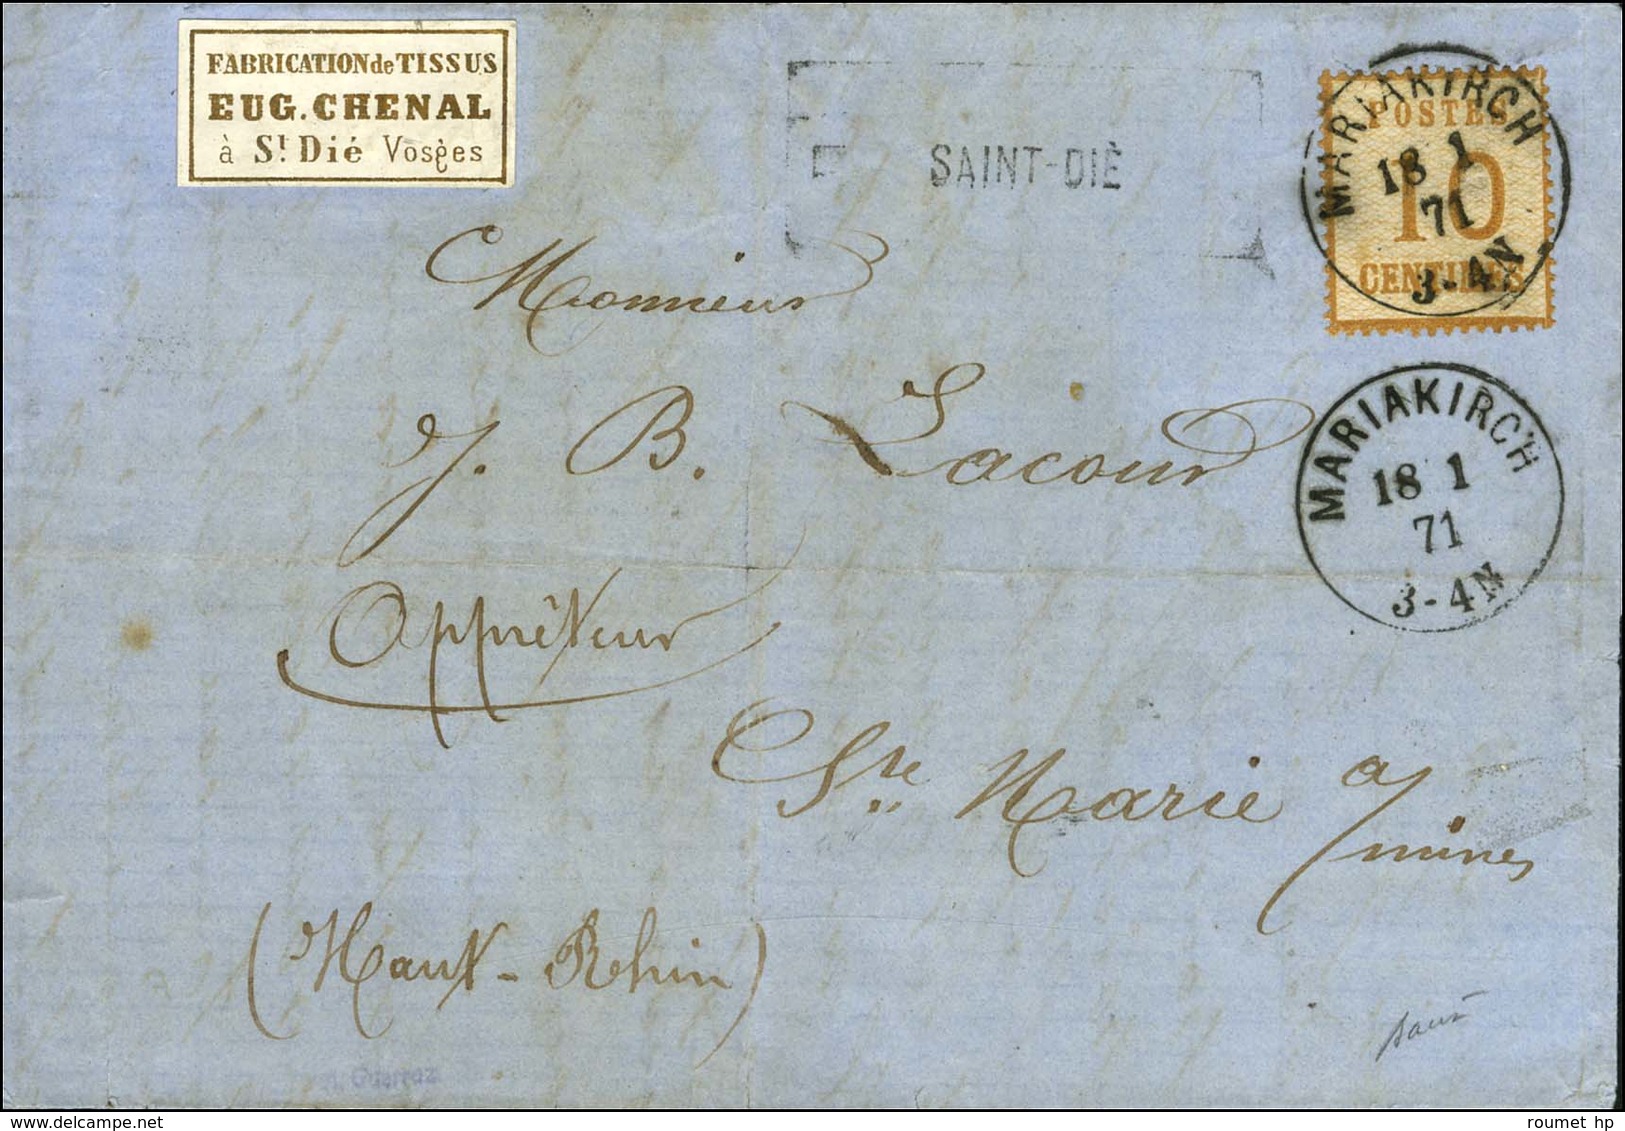 FABRICATION de TISSUS
EUG. CHENAL
à St. Dié Vosges
SAINT-DIÉ
POSTES
10
CENTIMES
MARIAKIRCH
18 1
71
3-4N
MARIAKIRCH
18 1
71
3-4N
Monsieur
J. B. Lacour
Apprêteur
Ste Marie a/mines
(Haut-Rhin)
roumet hp